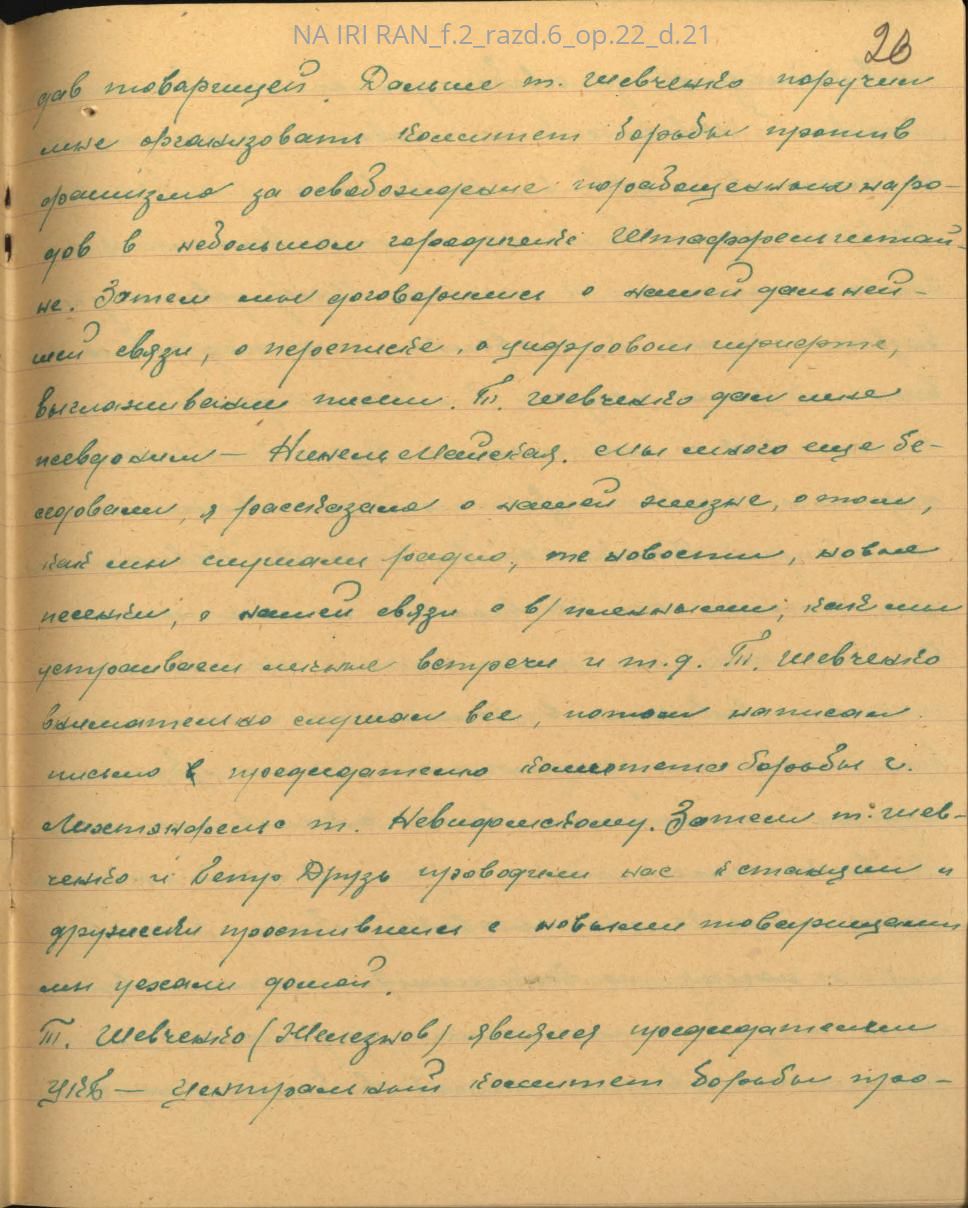 NA IRI RAN_f.2_razd.6_op.22_d.21
26
дав товарищей. Дальше т. Шевченко поручил
мне организовать комитет борьбы против
фашизма за освобождение порабощенных наро-
дов в небольшом городишке Штаффельштай-
не. Затем мы договорились о нашей дальней-
шей связи, о переписке, о цифровом шрифте,
выглаживании писем. Т. Шевченко дал мне
псевдоним — Нинель Майская. Мы много еще бе-
седовали, я рассказала о нашей жизне, о том,
как мы слушали радио, новости, новые
песенки, о нашей связи с в/пленными, как мы
устраиваем личные встречи и т.д. Т. Шевченко
внимательно слушал все, потом написал
письмо к председателю комитета борьбы г.
Лихтэнфельс т. Невидомскому. Затем т. Шев-
ченко и Петр Друзь проводили нас к станции и
дружески простившись с новыми товарищами
мы уехали домой.
Т. Шевченко (Железнов) являлся председателем
ЦКБ — Центральный комитет борьбы про-